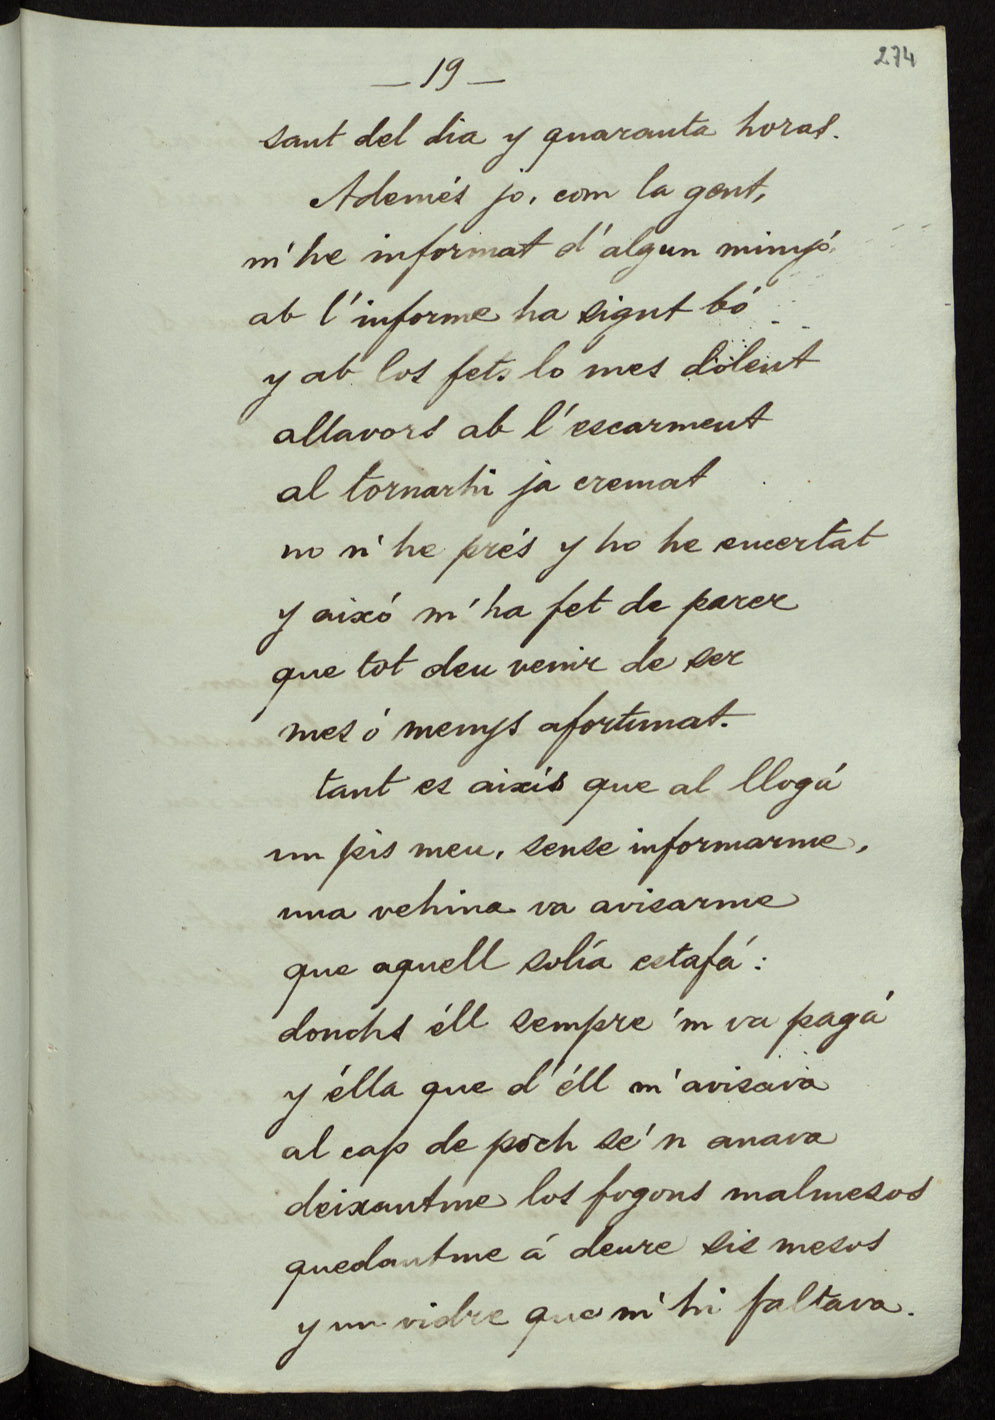 274
— 19 —
sant del dia y quaranta horas.
Además jo, com la gent,
m'he informat d'algun minyó,
ab l'informe ha sigut bó
y ab los fets lo mes dolent
allavors ab l'escarment
al tornarhi ja cremat
no n'he prés y ho he encertat
y aixó m'ha fet de parer
que tot deu venir de ser
mes ó menys afortunat.
tant es aixís que al llogá
un pis meu, sense informarme,
una vehina va avisarme
que aquell solía estafá:
donchs éll sempre 'm va pagá
y élla que d'éll m'avisava
al cap de poch se'n anava
deixantme los fogons malmesos
quedantme á deure sis mesos
y un vidre que m'hi faltava.